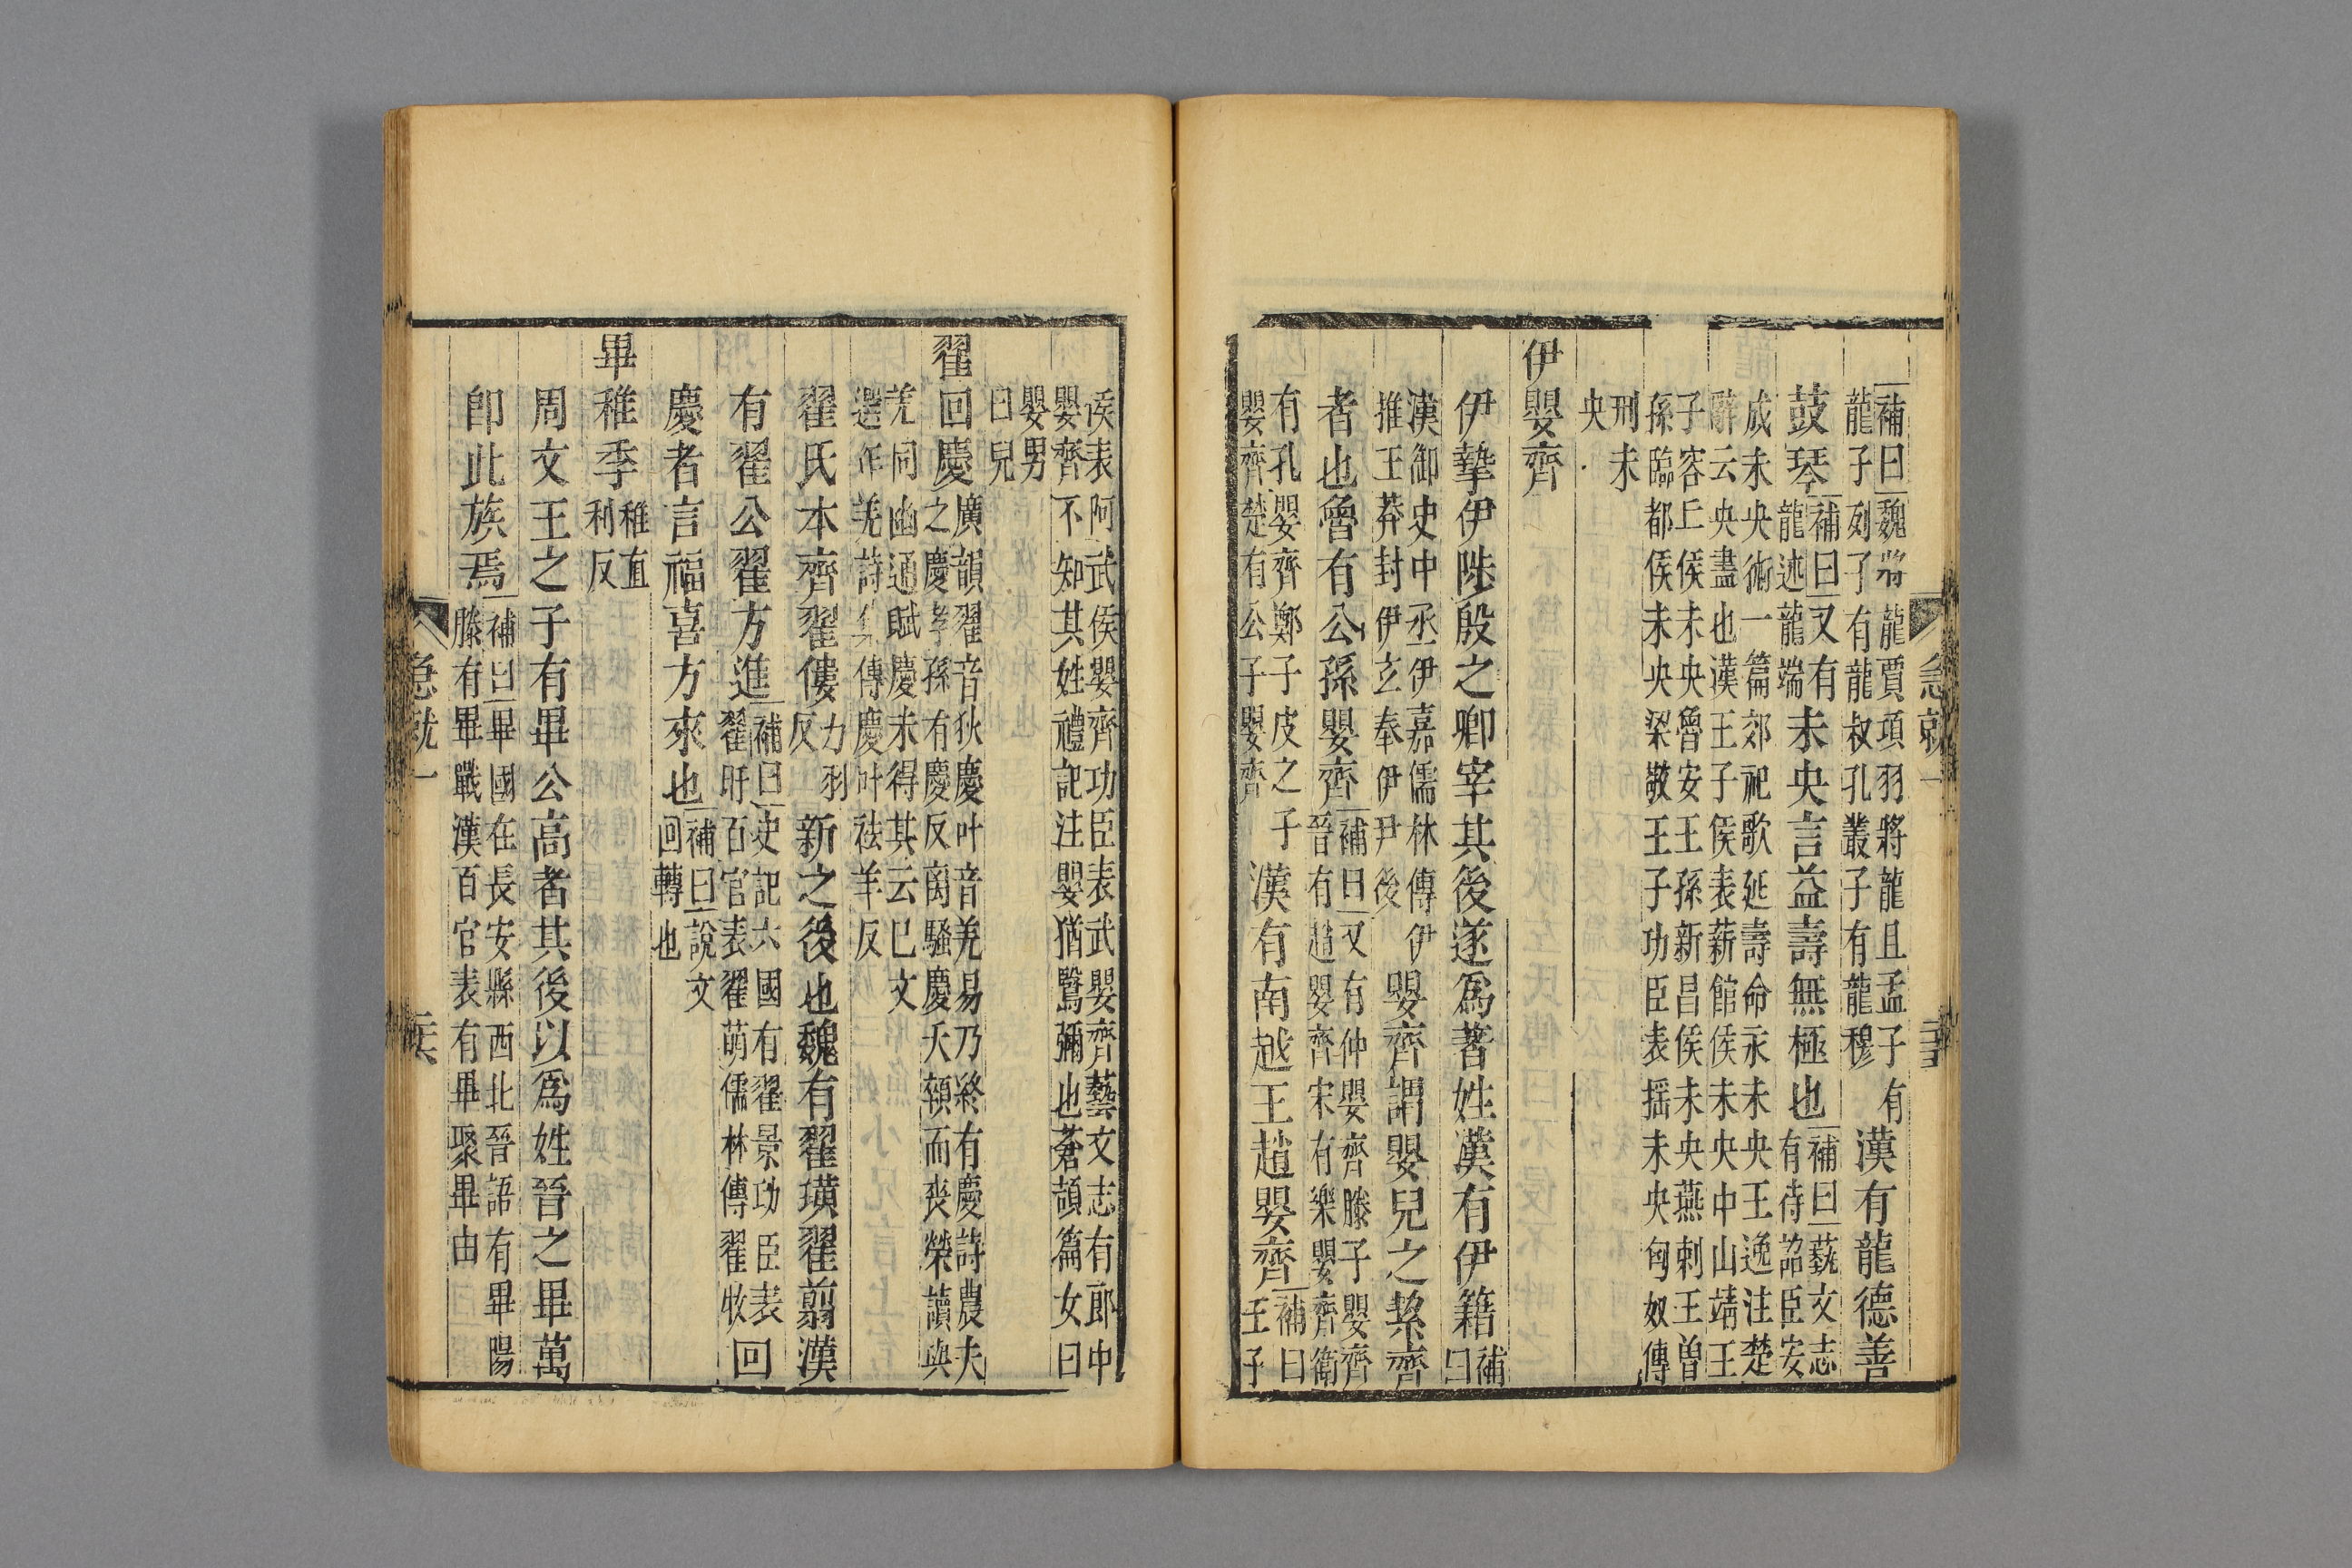 急就一
補曰魏將龍賈項羽將龍且孟子有
龍子列子有龍叔孔叢子有龍穆
漢有龍德善
鼓琴
補曰又有
龍述龍端
未央言益壽無極也
補曰藝文志
有待詔臣安
成未央術一篇郊祀歌延壽命永未央王逸注楚
辭云央盡也漢王子侯表薪館侯未央中山靖王
子容丘侯未央魯安王孫新昌侯未央燕剌王曾
孫臨都侯未央梁敬王子功臣表揺未央匈奴傳
刑未
央
伊嬰齊
伊摯伊陟殷之卿宰其後遂爲著姓漢有伊籍
補
曰
漢御史中丞伊嘉儒林傳伊
推王莽封伊玄奉伊尹後
嬰齊謂嬰兒之絜齊
者也魯有公孫嬰齊
補曰又有仲嬰齊滕子嬰齊
晉有趙嬰齊宋有樂嬰齊衛
有孔嬰齊鄭子皮之子
嬰齊楚有公子嬰齊
漢有南越王趙嬰齊
補曰
王子
侯表阿武侯嬰齊功臣表武嬰齊藝文志有郎中
嬰齊不知其姓禮記注嬰猶鷖彌也蒼頡篇女曰
嬰男
曰兒
翟回慶
廣韻翟音狄慶叶音羌易乃終有慶詩農夫
之慶孝孫有慶反离騷慶夭顇而喪榮讀與
羌同幽通賦慶未得其云已文
選作羌詩集傳慶叶祛羊反
翟氏本齊翟僂
力羽
反
新之後也魏有翟璜翟翦漢
有翟公翟方進
補曰史記六國有翟景功臣表
翟盱百官表翟萌儒林傳翟牧
回
慶者言福喜方來也
補曰說文
回轉也
畢稚季
稚直
利反
周文王之子有畢公高者其後以爲姓晉之畢萬
卽此族焉
補曰畢國在長安縣西北晉語有畢陽
滕有畢戰漢百官表有畢聚畢由
急就一